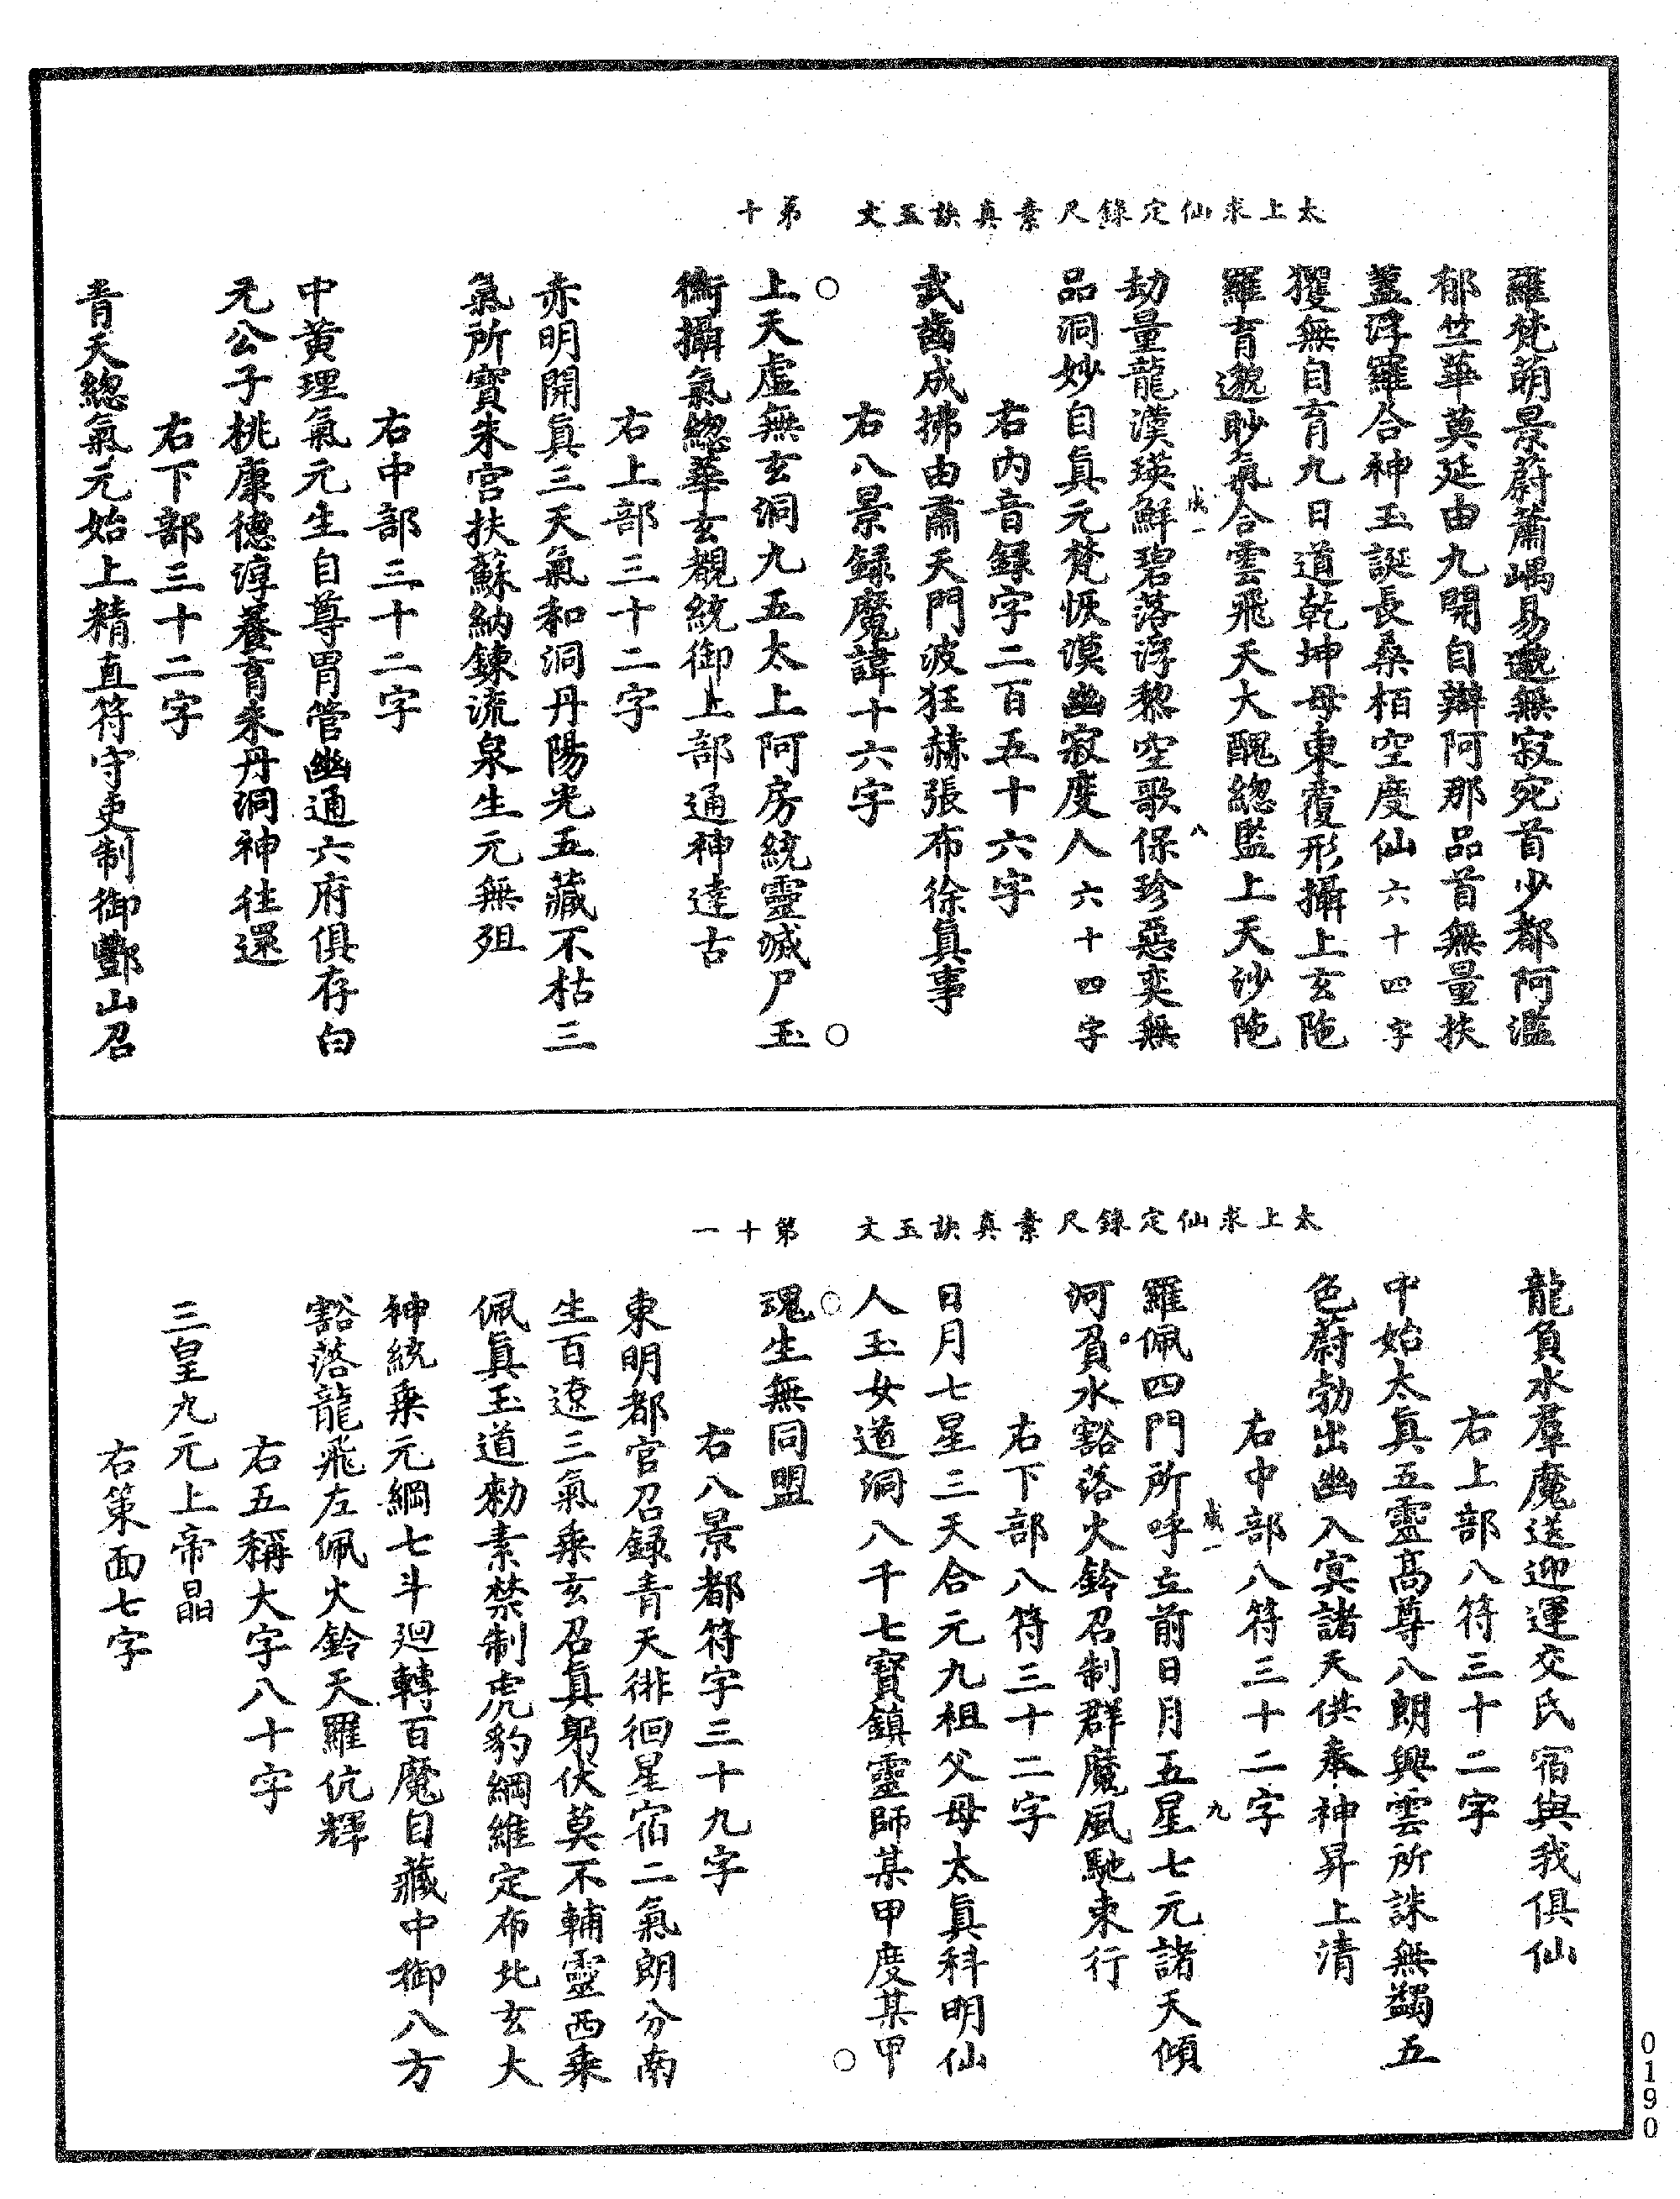 太上求仙定錄尺素真訣玉文　第十
羅梵萌景蔚蕭嵎易邈無寂宛首少都阿濫
郁竺華莫延由九開自辯阿那品首無量扶
蓋浮羅合神玉誕長桑栢空度仙六十四字
玃無自育九日道乾坤母東覆形攝上玄陁
羅育邈眇氣合雲飛天大醜總監上天沙陁
咸一　八
劫量龍漢瑛鮮碧落浮黎空歌保珍惡奕無
品洞妙自真元梵恢漠幽寂度人六十四字
右內音録字二百五十六字
武齒成拂由肅天門波狂赫張布徐真事
右八景録魔諱十六字
上天虛無玄洞九五太上阿房統靈滅尸玉
衛攝氣總華玄觀統御上部通神達古
右上部三十二字
赤明開真三天氣和洞丹陽光五藏不枯三
氣所寶朱宮扶蘇納鍊流泉生元無殂
右中部三十二字
中黃理氣元生自尊胃管幽通六府俱存白
元公子桃康德淳養育朱丹洞神往還
右下部三十二字
青天總氣元始上精直符守吏制御酆山召
太上求仙定錄尺素真訣玉文　第十一
龍負水羣魔送迎運交氏宿與我俱仙
右上部八符三十二字
中始太真五靈高尊八朗興雲所誅無蠲五
色蔚勃出幽入冥諸天供奉神昇上清
右中部八符三十二字
咸一　九
羅佩四門所呼立前日月五星七元諸天傾
河負水豁落火鈴召制群魔風馳束行
右下部八符三十二字
日月七星三天合元九祖父母太真科明仙
人玉女道洞八千七寶鎮靈師某甲度某甲
魂生無同盟
右八景都符字三十九字
東明都官召録青天徘徊星宿二氣朗分南
生百遼三氣乘玄召真躬伏莫不輔靈西乘
佩真玉道勑素禁制虎豹綱維定布北玄大
神統乘元綱七斗廻轉百魔自藏中御八方
豁落龍飛左佩火鈴天羅伉輝
右五稱大字八十字
三皇九元上帝晶
右策面七字
0190